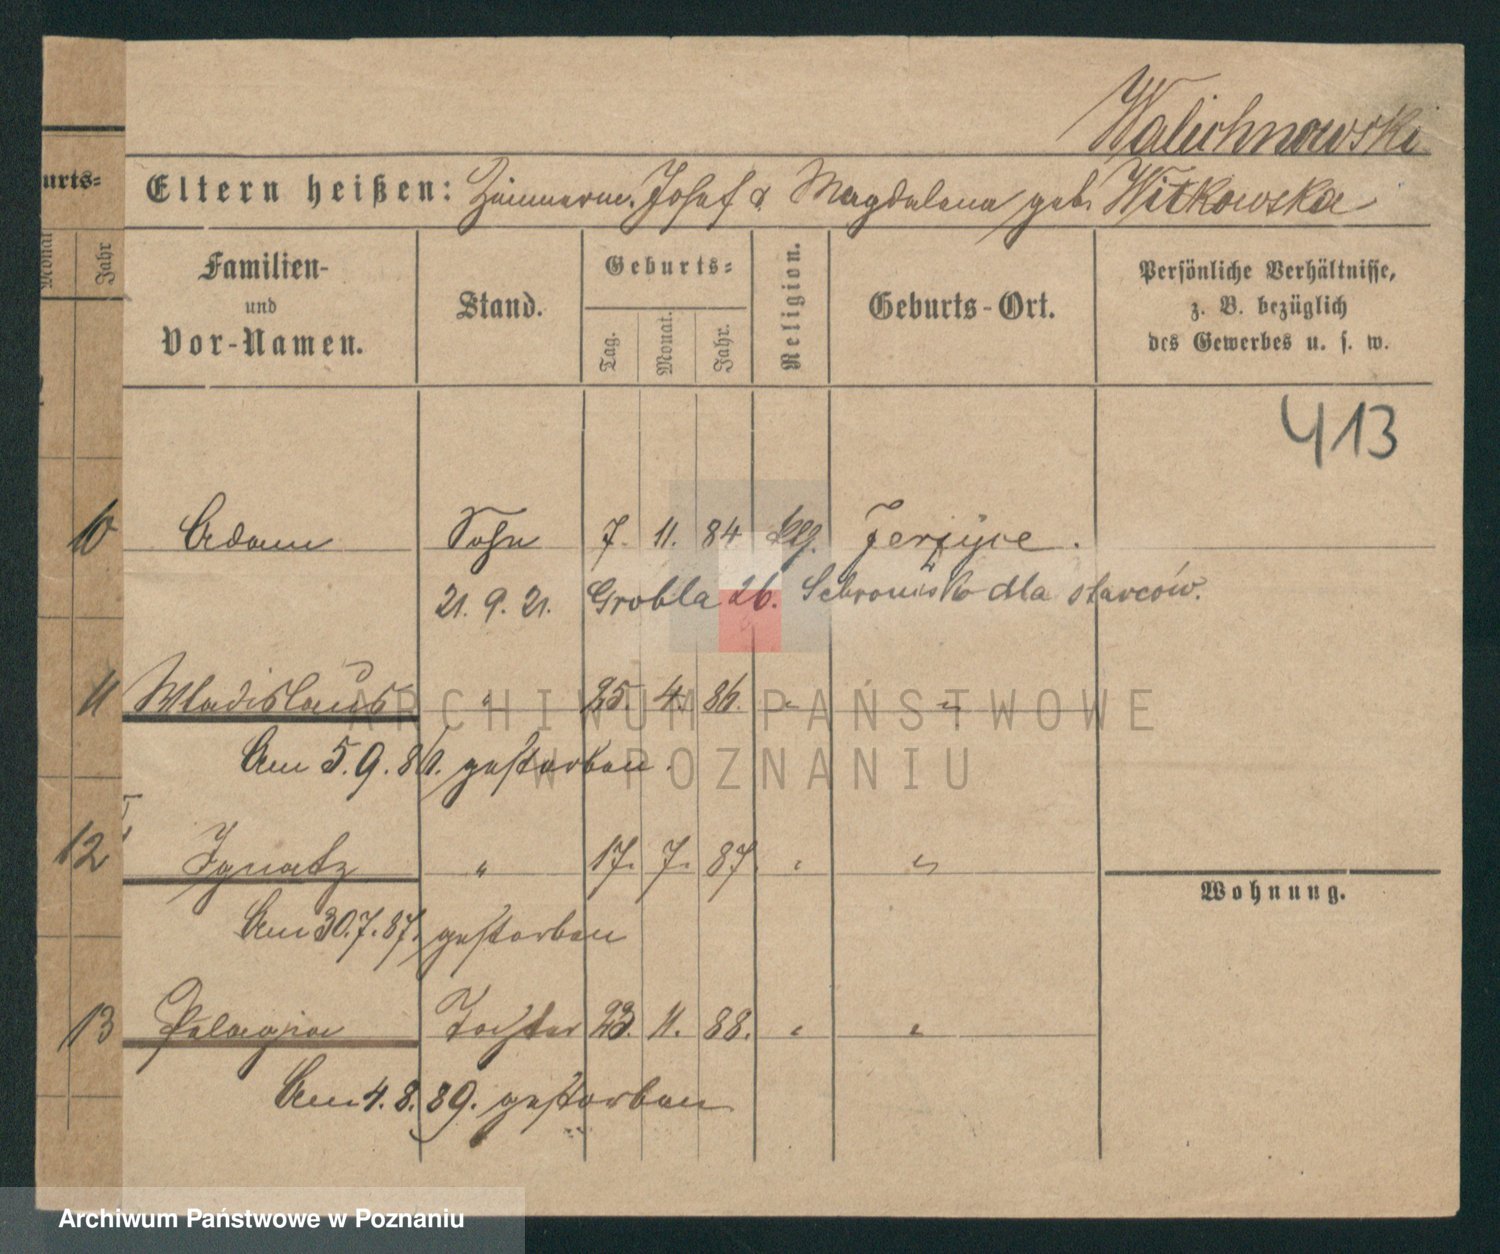 Walichnowski
Eltern heißen: Zimmerm. Josef & Magdalena geb. Witkowska
urts=
Monat
Jahr
Familien-
und
Vor-Namen.
Stand.
Geburts=
Tag.
Monat.
Jahr.
Religion.
Geburts-Ort.
Persönliche Verhältnisse,
z. B. bezüglich
des Gewerbes u. s. w.
413
10 Adam Sohn 7. 11. 84 Jerzyce.
21. 9. 21. Grobla 26. Schronisko dla starców.
11 Wladislaus " 25. 4. 86. " "
Am 5. 9. 86. gestorben.
12 Ignatz " 17. 7. 87. " "
Am 30. 7. 87. gestorben
Wohnung.
13 Pelagia Tochter 23. 11. 88. " "
Am 4. 8. 89. gestorben
ARCHIWUM PAŃSTWOWE
W POZNANIU
Archiwum Państwowe w Poznaniu